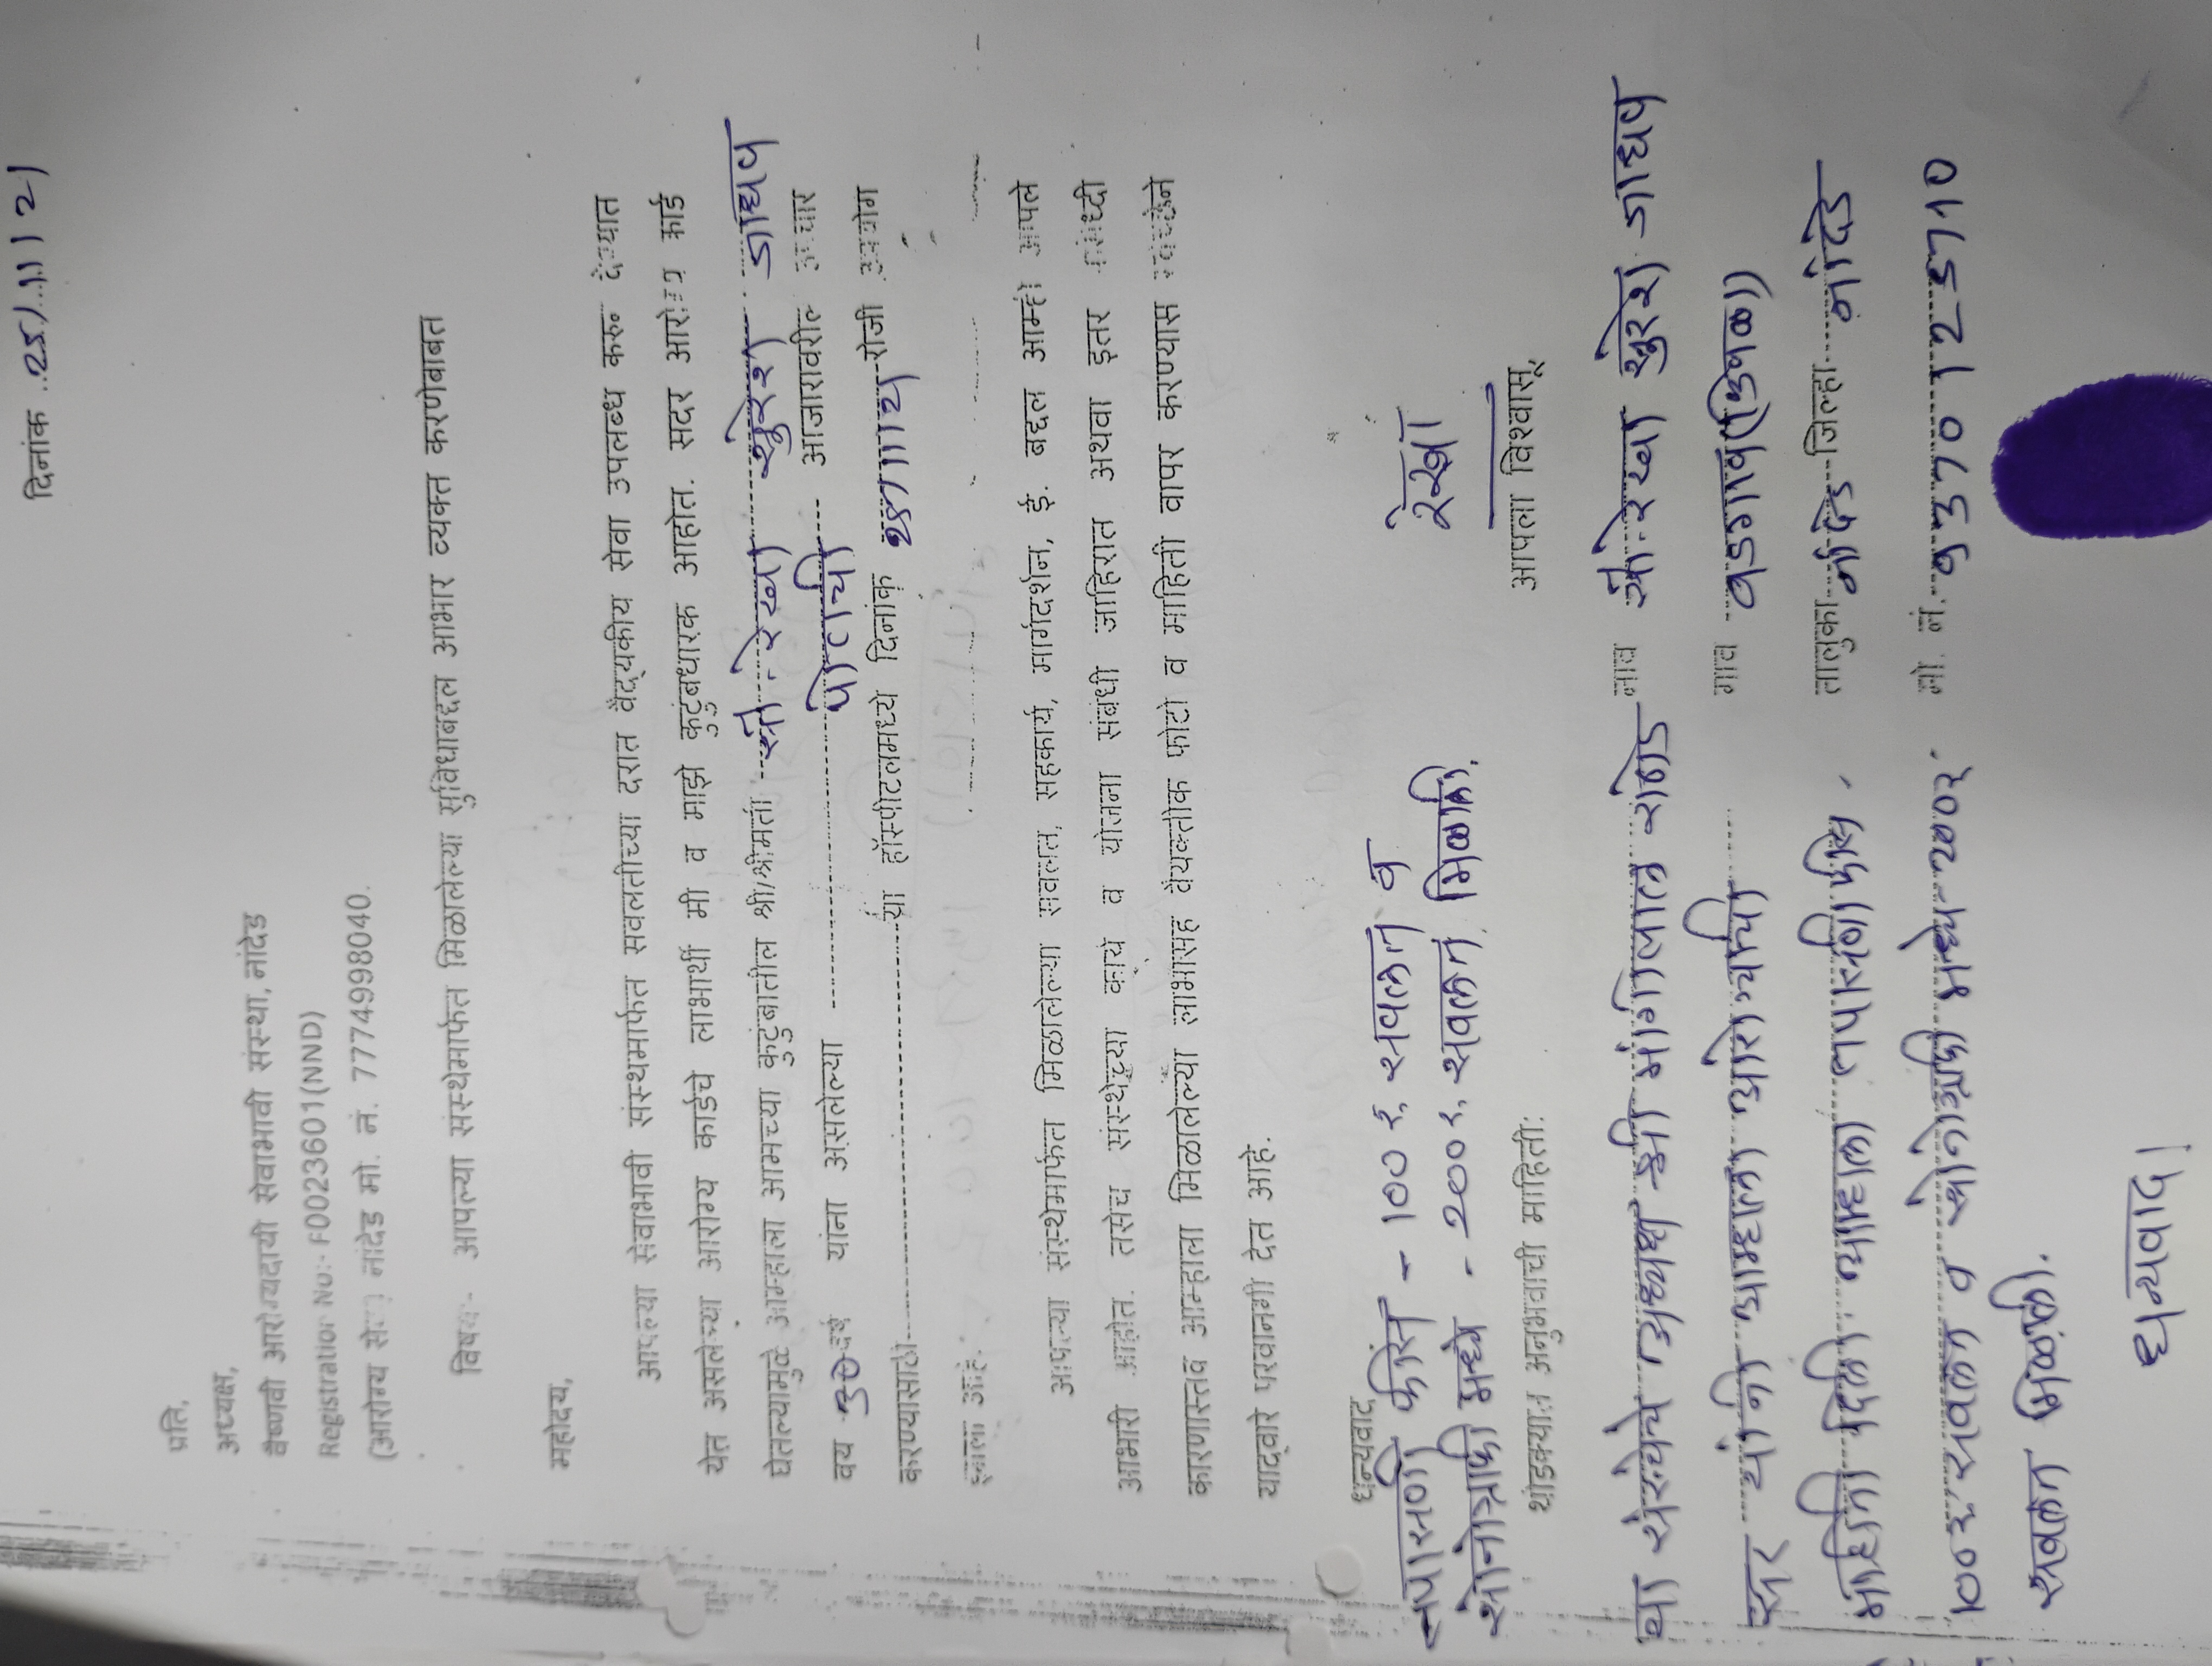 दिनांक 25/11/21
प्रति,
अध्यक्ष,
वैष्णवी आरोग्यदायी सेवाभावी संस्था, नांदेड
Registration No:- F0023601(NND)
(आरोग्य सेवा) नांदेड मो. नं. 7774998040.
विषय:- आपल्या संस्थेमार्फत मिळालेल्या सुविधाबद्दल आभार व्यक्त करणेबाबत
महोदय,
आपल्या सेवाभावी संस्थेमार्फत सवलतीच्या दरात वैद्यकीय सेवा उपलब्ध करून देण्यात
येत असलेल्या आरोग्य कार्डचे लाभार्थी मी व माझे कुटुंबधारक आहोत. सदर आरोग्य कार्ड
घेतल्यामुळे आम्हाला आमच्या कुटुंबातील श्री/श्रीमती सौ. रेखा सुरेश जाधव
वय 50 वर्ष यांना असलेल्या पोटाची आजारावरील उपचार
करण्यासाठी या हॉस्पीटलमध्ये दिनांक 25/11/21 रोजी उपयोग
झाला आहे.
आपल्या संस्थेमार्फत मिळालेल्या सवलत, सहकार्य, मार्गदर्शन, ई. बद्दल आम्ही आपले
आभारी आहोत. तसेच संस्थेच्या कार्य व योजना संबंधी जाहिरात अथवा इतर प्रसिध्दी
कारणास्तव आम्हाला मिळालेल्या लाभासह वैयक्तीक फोटो व माहिती वापर करण्यास स्वच्छेने
याद्वारे परवानगी देत आहे.
धन्यवाद
तपासणी फीस - 100 रु. सवलत व
सोनोग्राफी मध्ये - 200 रु. सवलत मिळाली.
रेखा
आपला विश्वासू
थोडक्यात अनुभवाची माहिती:
या संस्थेचे अध्यक्ष श्री मांगीलाल राठोड
सर यांनी आम्हाला आरोग्याची
माहिती दिली. आम्हाला तपासणी फीस
100 रु सवलत व सोनोग्राफी मध्ये 200 रु.
सवलत मिळाली.
धन्यवाद।
नाव सौ. रेखा सुरेश जाधव
गाव वडगाव
तालुका नांदेड जिल्हा नांदेड
मो. नं. 9370125710